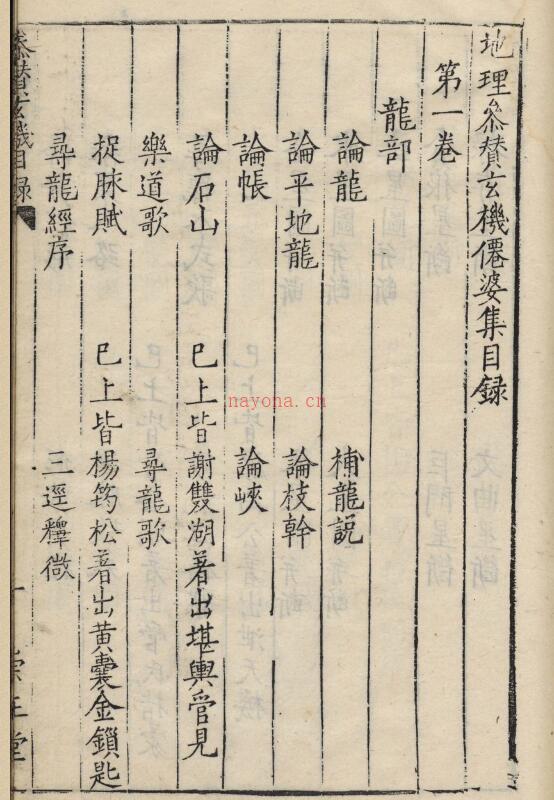 地理叅賛玄機僊婆集目録
第一卷
龍部
論龍 補龍説
論平地龍 論枝幹
論帳 論峽
論石山 已上皆謝雙湖著出堪輿管見
樂道歌 尋龍歌
捉脉賦 已上皆楊筠松著出黄囊金鎖匙
尋龍經序 三逕釋微
叅賛玄機目録 一 崇正堂
nayona.cn